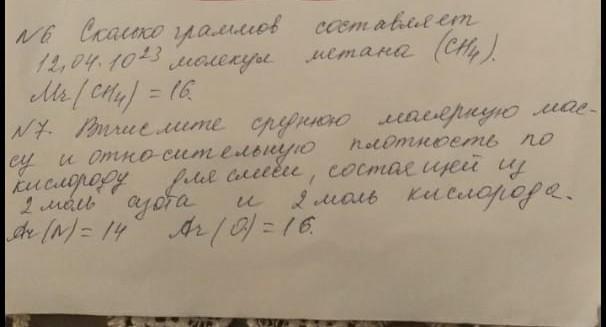 №6. Сколько граммов составляет
12,04·10²³ молекул метана (CH₄).
Mr(CH₄) = 16.
№7. Вычислите среднюю молярную мас-
су и относительную плотность по
кислороду для смеси, состоящей из
2 моль азота и 2 моль кислорода.
Ar(N) = 14 Ar(O) = 16.